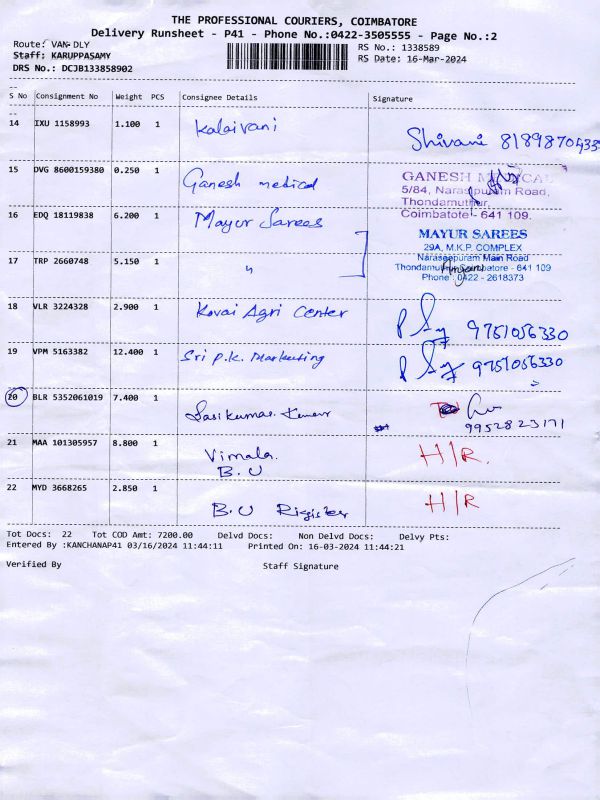 THE PROFESSIONAL COURIERS, COIMBATORE
Delivery Runsheet - P41 - Phone No.:0422-3505555 - Page No.:2
Route: VAN-DLY
Staff: KARUPPASAMY
DRS No.: DCJB133858902
RS No.: 1338589
RS Date: 16-Mar-2024
S No Consignment No Weight PCS Consignee Details Signature
14 IXU 1158993 1.100 1 Kalaivani Shivani 8189870433
15 DVG 8600159380 0.250 1 Ganesh medical
GANESH MEDICAL
5/84, Narasipuram Road,
Thondamuthur,
Coimbatore - 641 109.
16 EDQ 18119838 6.200 1 Mayur Sarees
MAYUR SAREES
29A, M.K.P. COMPLEX
Naraseepuram Main Road
Thondamuthur Coimbatore - 641 109
Phone : 0422 - 2618373
17 TRP 2660748 5.150 1 "
18 VLR 3224328 2.900 1 Kovai Agri Center 9751056330
19 VPM 5163382 12.400 1 Sri P.K. Marketing 9751056330
20 BLR 5352061019 7.400 1 Sasikumar Kumar 9952823171
21 MAA 101305957 8.800 1 Vimala H/R.
B.U
22 MYD 3668265 2.850 1 B.U Rigister H/R
Tot Docs: 22 Tot COD Amt: 7200.00 Delvd Docs: Non Delvd Docs: Delvy Pts:
Entered By :KANCHANAP41 03/16/2024 11:44:11 Printed On: 16-03-2024 11:44:21
Verified By Staff Signature